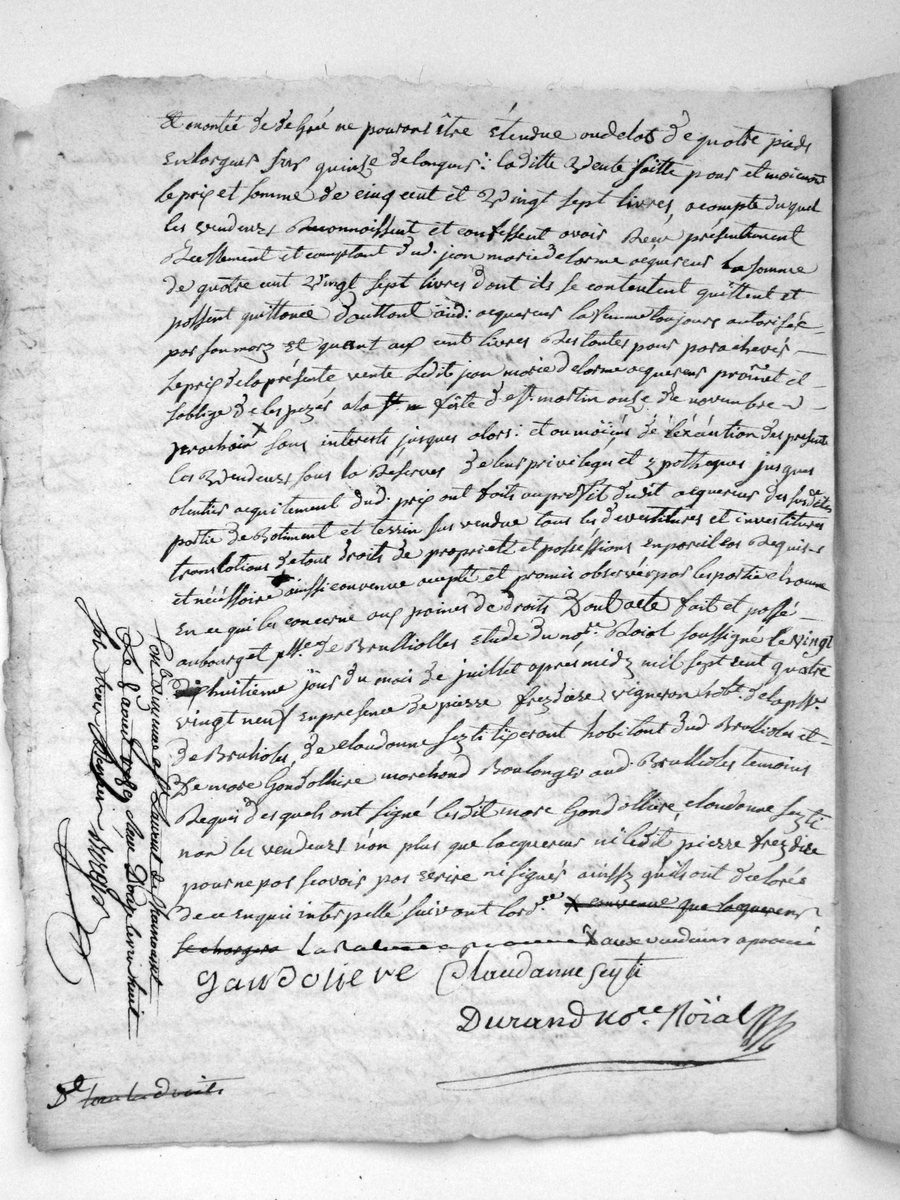 Et montée de degré ne pouvant être étendue audelas de quatre pieds
en largeur sur quinze de longueur: laditte vente faitte pour et moienant
le prix et somme de cinq cent et vingt sept livres, acompte duquel
les vendeurs reconnoissent et confessent avoir reçu présentement
réellement et comptant dud: jean marie delorme acquereur la somme
de quatre cent vingt sept livres dont ils se contentent quittent et
passent quittance d'auttant audi: acquereur la femme toujours autorisée
par son mary et quant aux cent livres restantes pour parachever
le prix de la présente vente ledit jean marie delorme acquereur promet et
s'oblige de les payés a la fête de st. martin onze de novembre
prochain x sans interets jusques alors: et au moïens de l'éxécution des présentes
les vendeurs sous la reserves de leur privileges et ypotheques jusques
alentier acquitement dud: prix ont faits au profit dudit acquereur des susdites
partie de batiment et terrin sus vendue tous les devestitures et investitures
translations de tous droits de propriété et possessions en pareil cas requises
et nécéssoire ainssi convenue accepté et promis observér par les partie chacune
en ce qui les concerne aux paines de droits Dont acte fait et passé
au bourg et psse. de Brullioles etude du nore. Roial soussigné le vingt
huitième jour du mois de juillet après midy mil sept cent quatre
vingt neuf en presence de pierre vigneron habt. de la psse.
de Brullioles, de claudanne seyti tiperant habitant dud Brullioles et
de marc Gondolliere marchand Boulanger aud. Brullioles temoins
Requis desquels ont signé lesdit marc Gondolliere, claudanne seyti
non les vendeurs non plus que lacquereur ni ledit pierre
pour ne pas scavoir pas ecrire ni signér ainssy quils ont déclarée
de ce enquis interpellé suivant lord.ce x convenue que lacquereur
se chargera x aux vendeurs aprouvé
Gandoliere Claudanne seyti
Durand nore. Roïal
le 8 aout 1789